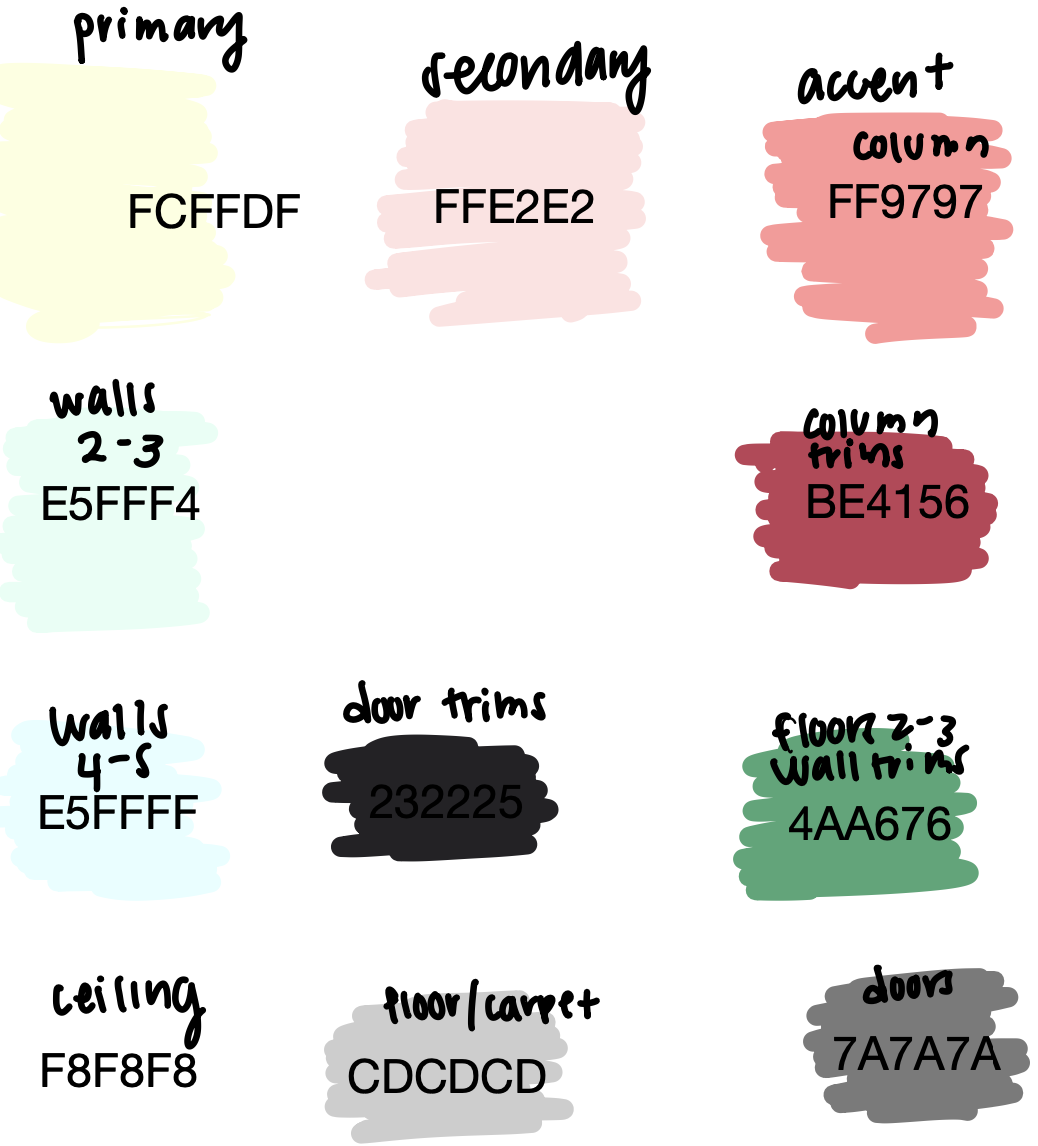 primary
FCFFDF
secondary
FFE2E2
accent
column
FF9797
walls
2-3
E5FFF4
column
trims
BE4156
walls
4-5
E5FFFF
door trims
232225
floor 2-3
wall trims
4AA676
ceiling
F8F8F8
floor/carpet
CDCDCD
doors
7A7A7A